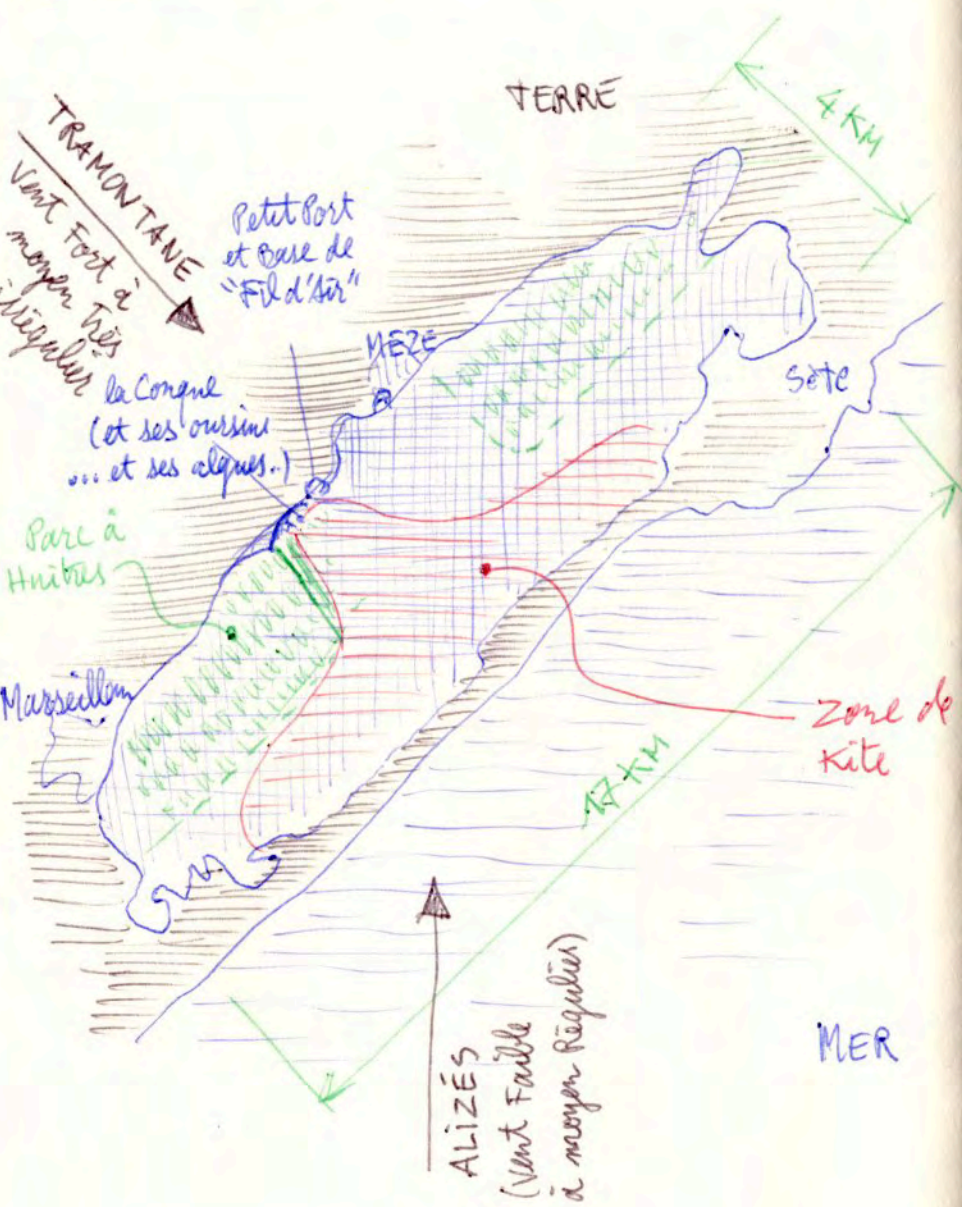 TERRE
4 KM
TRAMONTANE
Vent Fort à
moyen Très
irrégulier
Petit Port
et Base de
"Fil d'Air"
MEZE
Sète
la Conque
(et ses oursins
... et ses algues.)
Parc à
Huîtres
Marseillan
Zone de
Kite
17 KM
ALIZÉS
(Vent Faible
à moyen Régulier)
MER